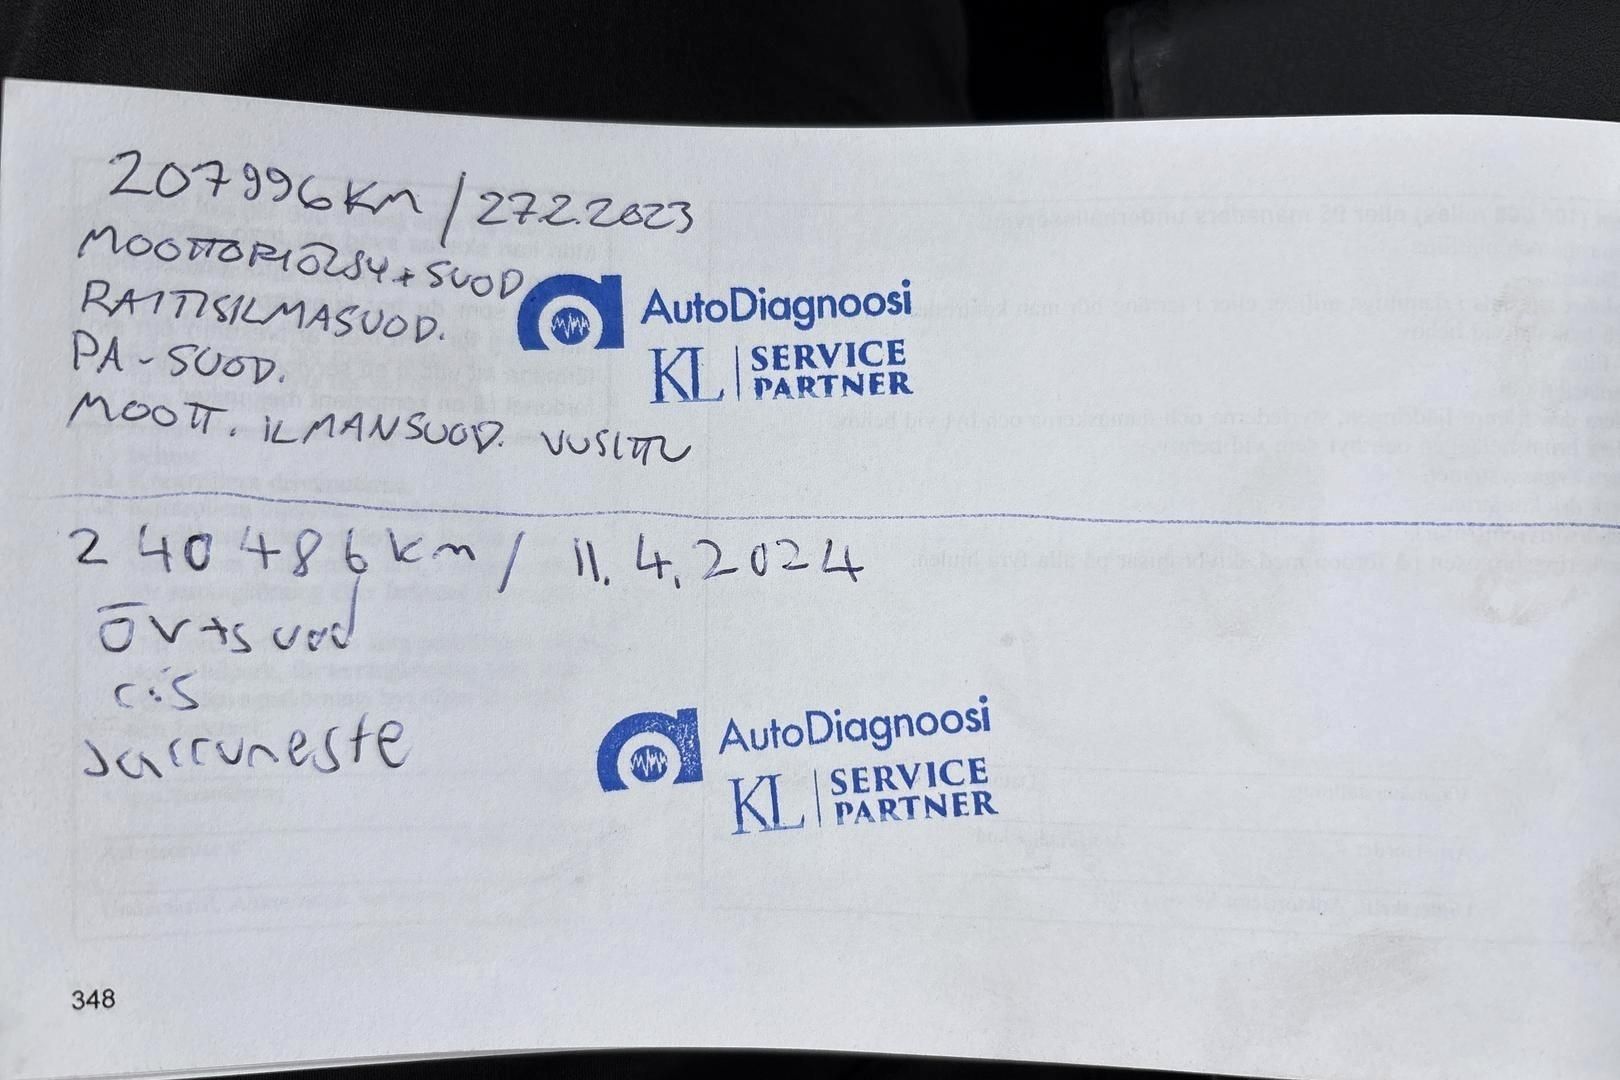 207996 KM / 27.2.2023
MOOTTORIÖLJY + SUOD
RAITISILMASUOD.
PA-SUOD.
MOOTT. ILMANSUOD. VUSITTU
AutoDiagnoosi
KL SERVICE PARTNER
240486 km / 11.4.2024
öv+suod
Jarruneste
AutoDiagnoosi
KL SERVICE PARTNER
348